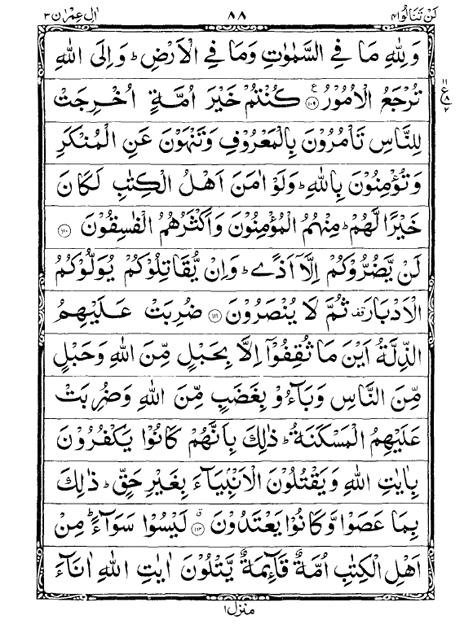 لَنْ تَنَالُوا ٤ ٨٨ اٰلِ عِمْرٰن ٣
وَلِلّٰهِ مَا فِي السَّمٰوٰتِ وَمَا فِي الْاَرْضِ ؕ وَاِلَى اللّٰهِ
تُرْجَعُ الْاُمُوْرُ ۝١٠٩ كُنْتُمْ خَيْرَ اُمَّةٍ اُخْرِجَتْ
لِلنَّاسِ تَاْمُرُوْنَ بِالْمَعْرُوْفِ وَتَنْهَوْنَ عَنِ الْمُنْكَرِ
وَتُؤْمِنُوْنَ بِاللّٰهِ ؕ وَلَوْ اٰمَنَ اَهْلُ الْكِتٰبِ لَكَانَ
خَيْرًا لَّهُمْ ؕ مِنْهُمُ الْمُؤْمِنُوْنَ وَاَكْثَرُهُمُ الْفٰسِقُوْنَ ۝١١٠
لَنْ يَّضُرُّوْكُمْ اِلَّاۤ اَذًى ؕ وَاِنْ يُّقَاتِلُوْكُمْ يُوَلُّوْكُمُ
الْاَدْبَارَ ۫ ثُمَّ لَا يُنْصَرُوْنَ ۝١١١ ضُرِبَتْ عَلَيْهِمُ
الذِّلَّةُ اَيْنَ مَا ثُقِفُوْۤا اِلَّا بِحَبْلٍ مِّنَ اللّٰهِ وَحَبْلٍ
مِّنَ النَّاسِ وَبَآءُوْ بِغَضَبٍ مِّنَ اللّٰهِ وَضُرِبَتْ
عَلَيْهِمُ الْمَسْكَنَةُ ؕ ذٰلِكَ بِاَنَّهُمْ كَانُوْا يَكْفُرُوْنَ
بِاٰيٰتِ اللّٰهِ وَيَقْتُلُوْنَ الْاَنْۢبِيَآءَ بِغَيْرِ حَقٍّ ؕ ذٰلِكَ
بِمَا عَصَوْا وَّكَانُوْا يَعْتَدُوْنَ ۝١١٢ لَيْسُوْا سَوَآءً ؕ مِنْ
اَهْلِ الْكِتٰبِ اُمَّةٌ قَآئِمَةٌ يَّتْلُوْنَ اٰيٰتِ اللّٰهِ اٰنَآءَ
منزل ١